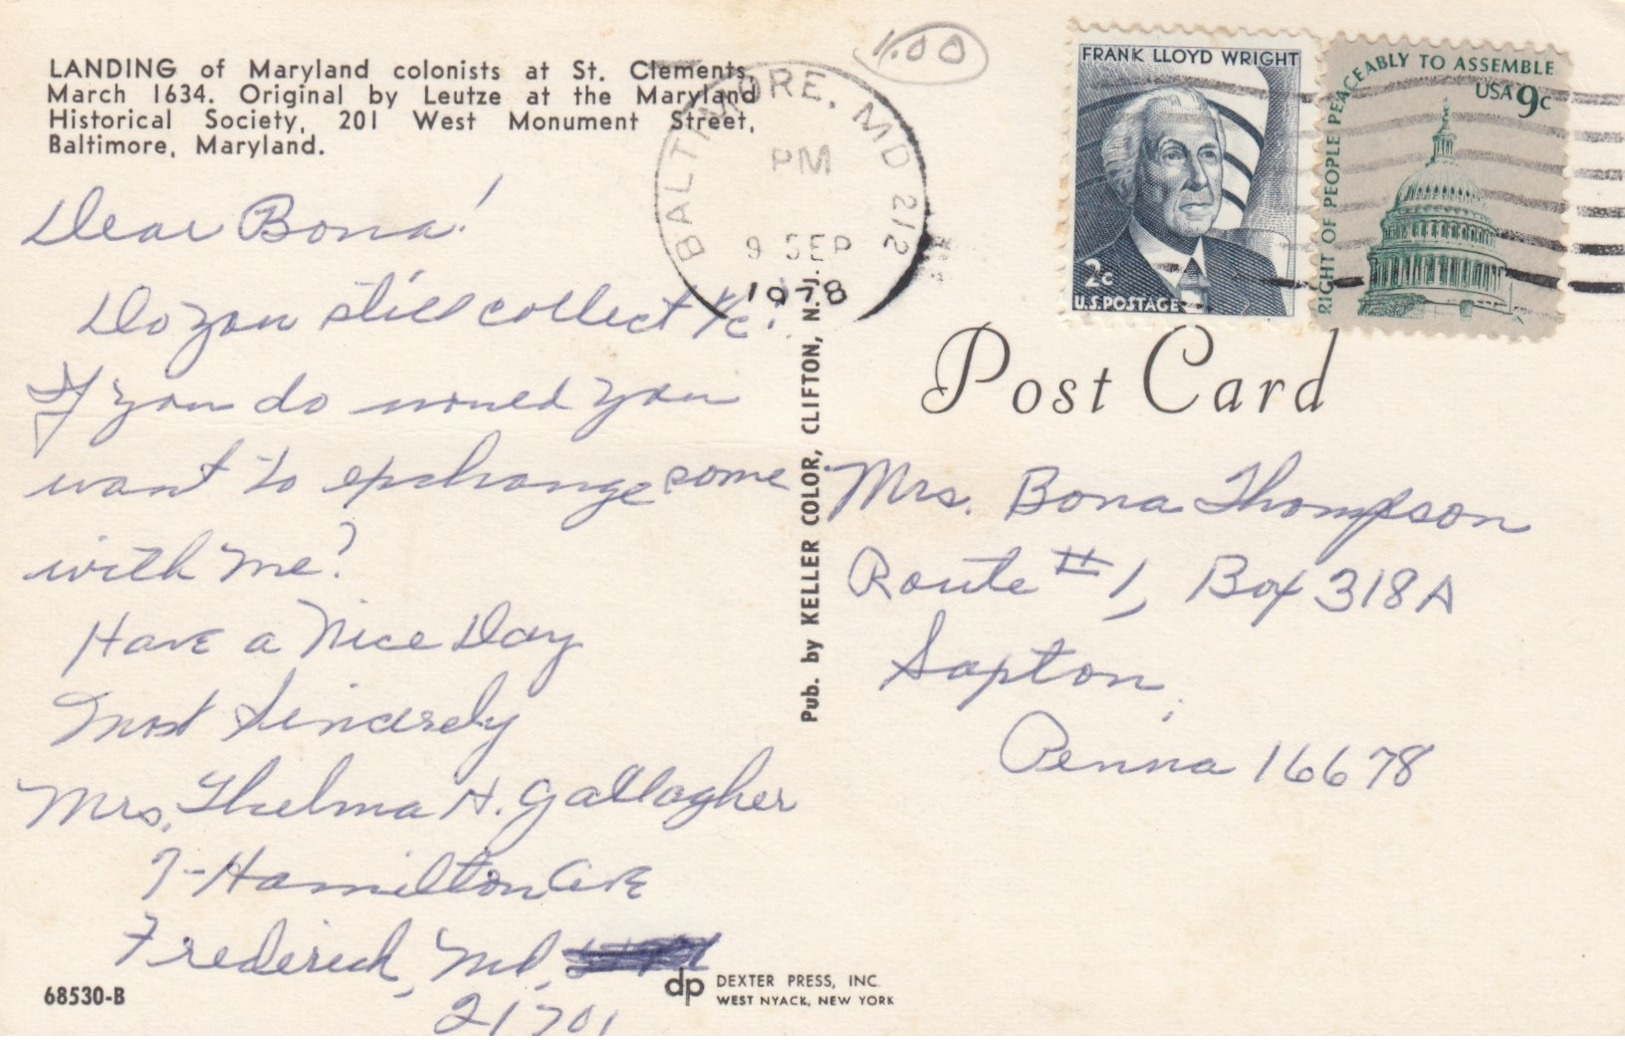 LANDING of Maryland colonists at St. Clements,
March 1634. Original by Leutze at the Maryland
Historical Society, 201 West Monument Street,
Baltimore, Maryland.
Dear Bona!
Do you still collect P/c?
If you do would you
want to exchange some
with me?
Have a Nice Day
Most Sincerely
Mrs. Thelma H. Gallagher
7-Hamilton Ave
Frederick, Md.
21701
68530-B
DEXTER PRESS, INC.
WEST NYACK, NEW YORK
dp
Pub. by KELLER COLOR, CLIFTON, N. J.
BALTIMORE, MD 212
PM
9 SEP
1978
1.00
FRANK LLOYD WRIGHT
2c
U.S. POSTAGE
RIGHT OF PEOPLE PEACEABLY TO ASSEMBLE
USA 9c
Post Card
Mrs. Bona Thompson
Route #1, Box 318A
Saxton,
Penna 16678